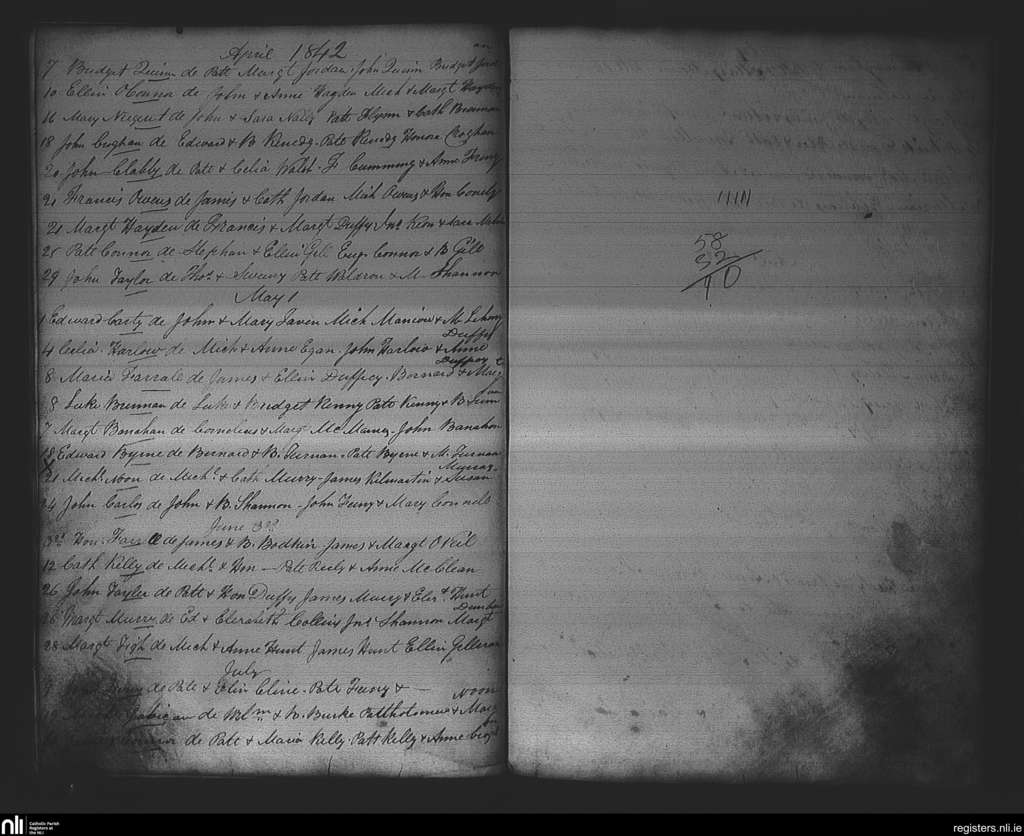 April 1842
7 Bridget Quinn de Patt Margt Jordan John Quinn Bridget
10 Ellin OConnor de John & Anne Hayden Mich & Margt Hayden
16 Mary Nugent de John & Sara Nally Patt Flynn & Cath Brennan
18 John Croghan de Edward & B Kenedy Patt Kenedy Honora Croghan
20 John Clabby de Patt & Celia Walsh F Cumming & Anne Feeny
21 Francis Owens de James & Cath Jordan Mich Owens & Hon Conely
21 Margt Hayden de Francis & Margt Duffy Jns Keon &
25 Patt Connor de Stephan & Ellin Gill Eugs Connor & B Gill
29 John Taylor de Thos & Sweeny Patt Waldron & M Shannon
May 1
1 Edward Carty de John & Mary Lavin Mich Manion & M
Duffy
4 Celia Harlow de Mich & Anne Egan John Harlow & Anne
Duffy
8 Maria Farrale de James & Ellin Duffy Bernard & Marg
8 Luke Brennan de Luke & Bridget Kenny Patt Kenny & B
7 Margt Banahan de Cornelius & Margt McManus John Banahan
18 Edward Byrne de Bernard & B. Furnan Patt Byrne & M. Furnan
Murray
21 Michl Noon de Michl & Cath Murry James Kilmartin & Susan
24 John Carlos de John & B. Shannon John Feeny & Mary Connols
June 3rd
3rd Hon Farrell de James & B. Bodkin James & Margt ONeil
12 Cath Kelly de Michl & Hon — Patt Reely & Anne McClean
26 John Tayler de Patt & Hon Duffy James Murry & Elizt Hunt
26 Margt Murry de Ed & Elizabeth Collins Jns Shannon Margt
28 Margt Tigh de Mich & Anne Hunt James Hunt Ellin Gilleran
July
Feeny de Patt & Elin Cline Patt Feeny & —
Noon
de Wm & B. Burke Batthelomew & Mary
Connor de Patt & Maria Kelly Patt Kelly & Anne
58
52
110
nli
Catholic Parish
Registers at
the NLI
registers.nli.ie